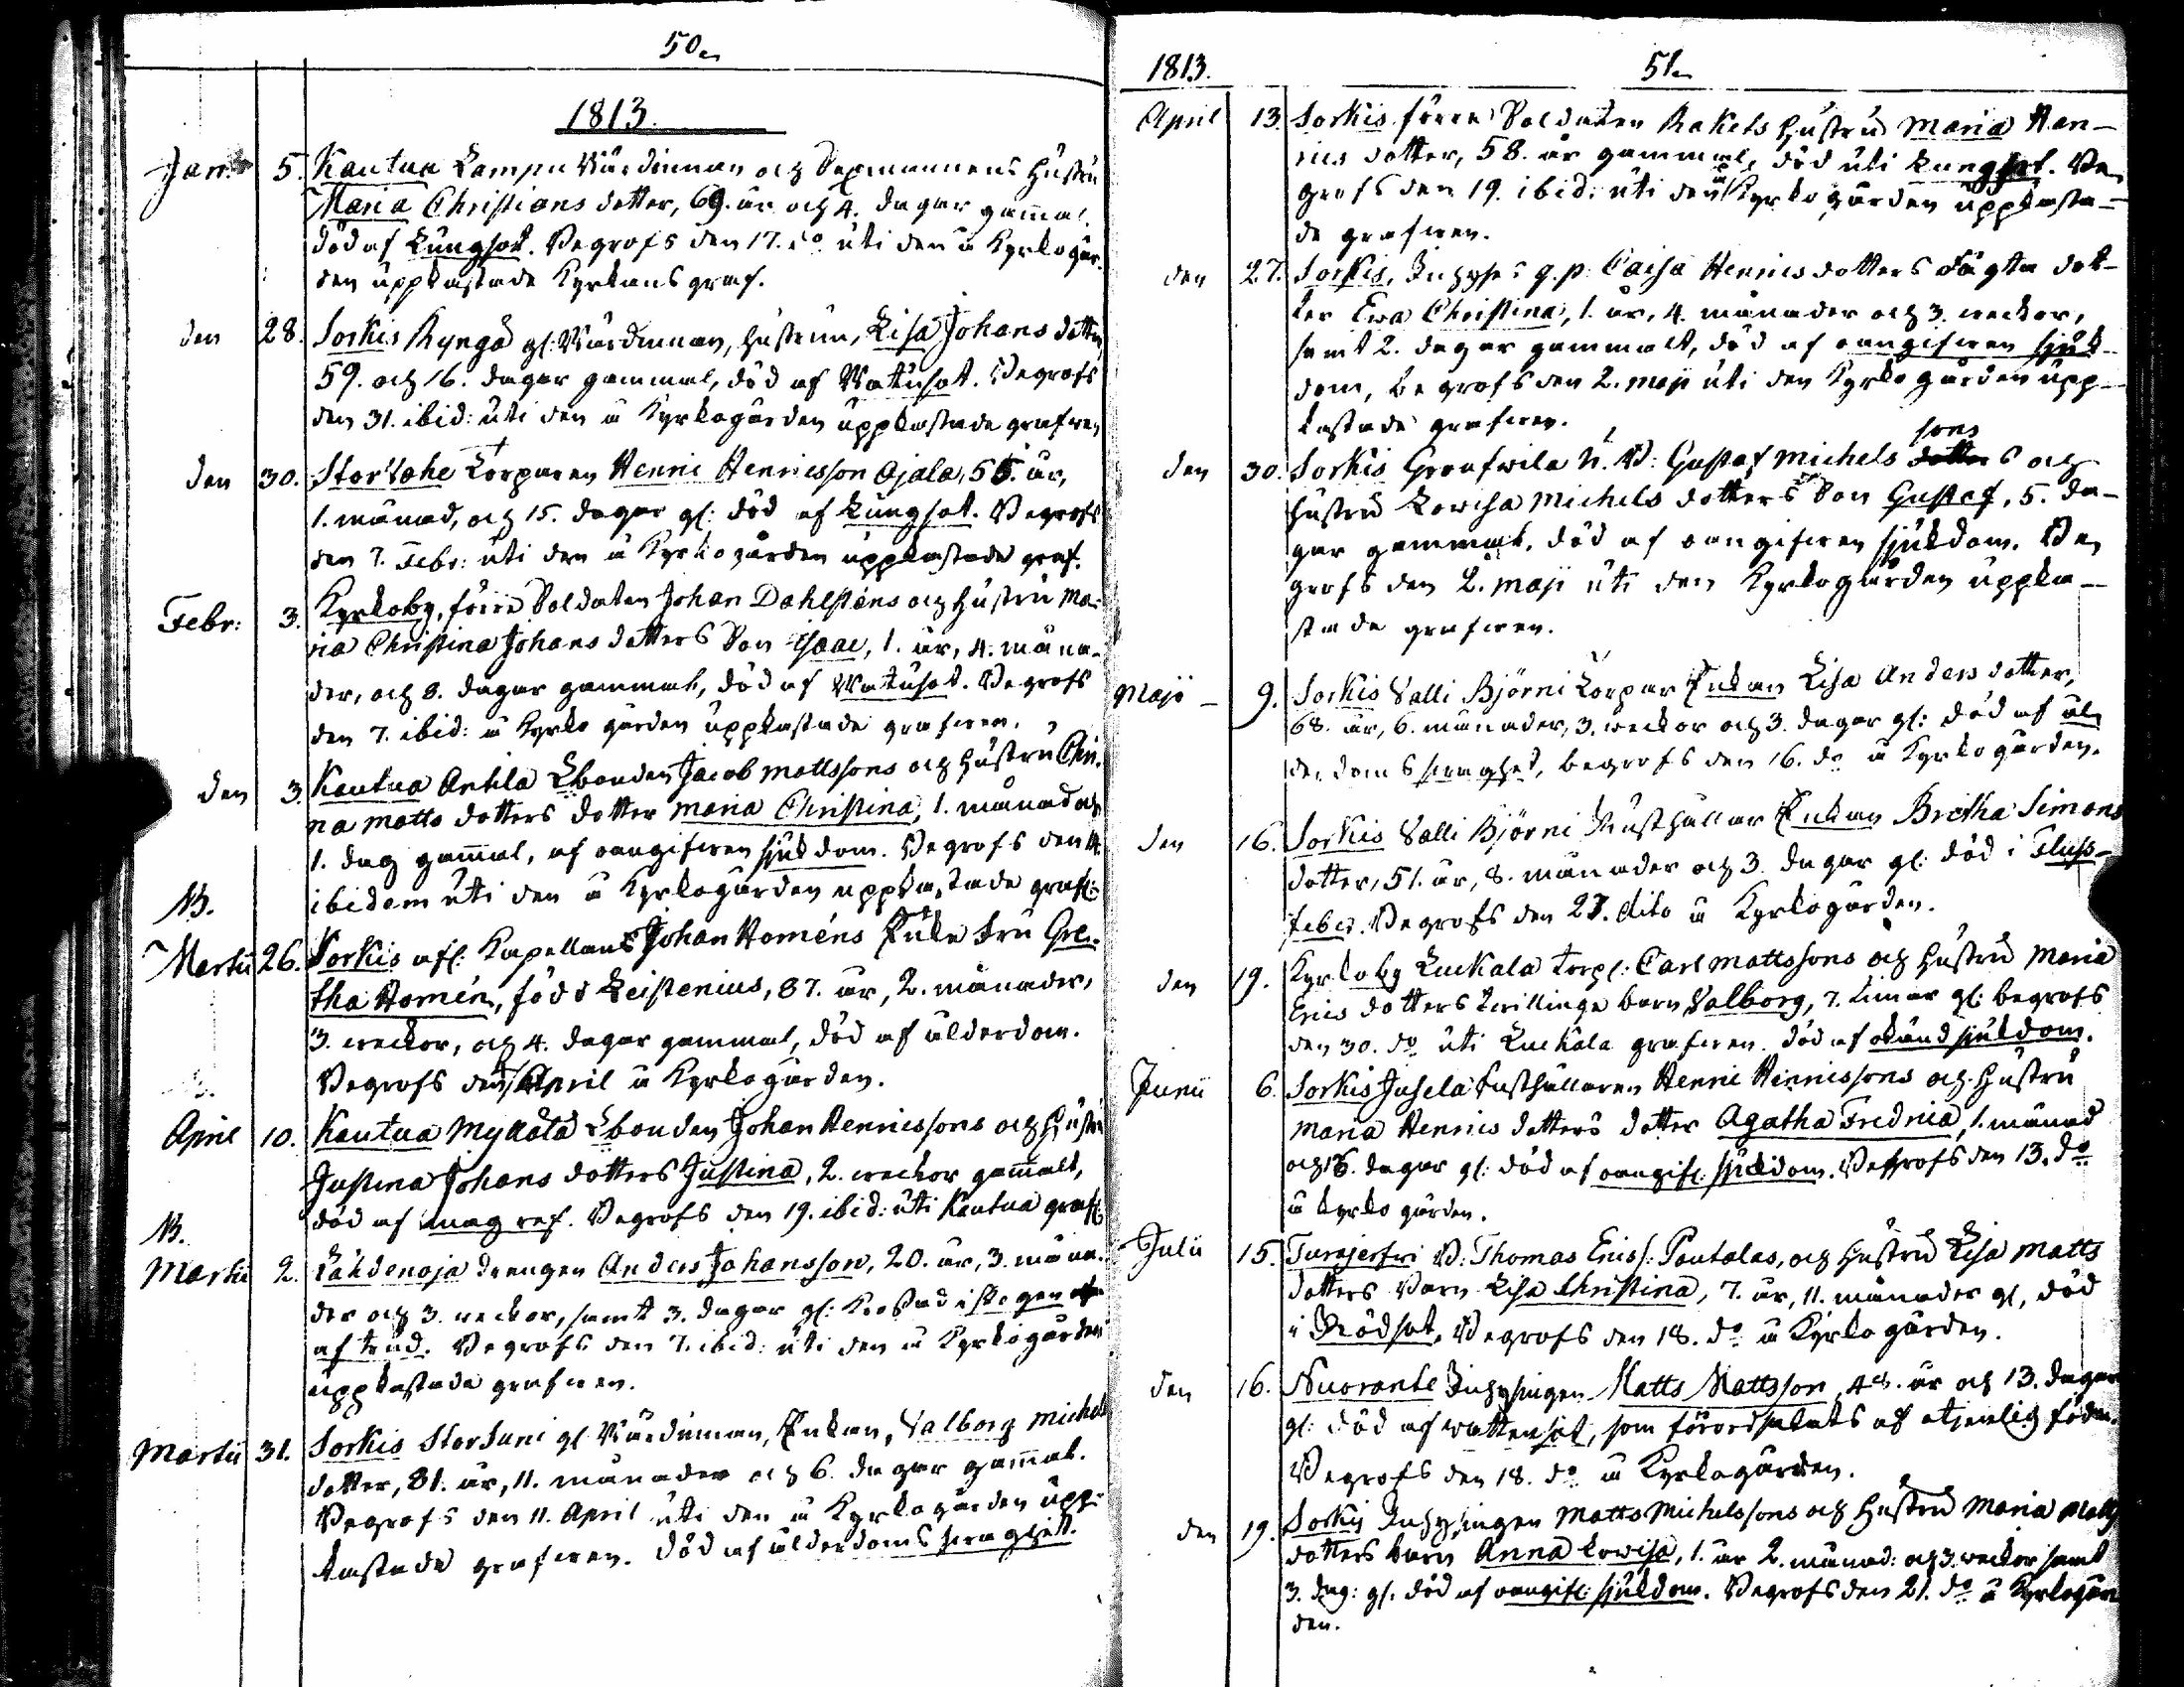 50.
1813.
Jan. 5. Kautua Lampu Wärdinnan och Sexmannens Hustru
Maria Christians dotter, 69. år och 4. dagar gamal
död af Lungsot. Begrofs den 17. do uti den å Kyrkogår-
den uppkastade Kyrkans graf.
den 28. Sorkis Ryngö gl: Wärdinnan, hustrun, Lisa Johans dotter
59. och 16. dagar gammal, död af Watusot. Begrofs
den 31. ibid: uti den å Kyrkogården uppkastade grafwen
den 30. Storlähe Torparen Henric Henricsson Ajala, 55. år,
1. månad, och 15. dagar gl: död af Lungsot. Begrofs
den 7. Febr: uti den å Kyrkogården uppkastade graf.
Febr: 3. Kyrkoby, förre Soldaten Johan Dahlstens och hustru Ma-
ria Christina Johans dotters Son Isaac, 1. år, 4. måna-
der, och 8. dagar gammal, död af Watusot. Begrofs
den 7. ibid: å Kyrko gården uppkastade grafwen.
den 3. Kautua Anhla Lbonden Jacob Mattssons och hustru Chri-
na Matts dotters dotter Maria Christina, 1. månad och
1. dag gamal, af oangifwen sjukdom. Begrofs den 14.
ibidem uti den å Kyrkogården uppkastade graf:
NB.
Martii 26. Sorkis afl: Kapellans Johan Homéns Enka Fru Gre-
tha Homén, född Leistenius, 87. år, 2. månader,
3. weckor, och 4. dagar gammal, död af ålderdom.
Begrofs den April å Kyrkogården.
April 10. Kautua Myllölä Lbonden Johan Henricssons och hustru
Justina Johans dotters Justina, 2. weckor gamalt,
död af mag ref. Begrofs den 19. ibid: uti Kautua graf:
NB.
Martii 2. Lähdenoja drengen Anders Johansson, 20. år, 3. måna-
der och 3. weckor, samt 3. dagar gl: Krossad i skogen
af träd. Begrofs den 7. ibid: uti den å Kyrkogården
uppkastade grafwen.
Martii 31. Sorkis StorSuni gl. Wärdinnan, Enkan, Valborg Michels
dotter, 81. år, 11. månader och 6. dagar gamal.
Begrofs den 11. April uti den å Kyrkogården upp-
kastade grafwen. död af ålderdoms swaghet.
1813. 51.
April 13. Sorkis förra Soldaten Rakets hustru Maria Hen-
rics dotter, 58. år gammal, död uti Lungsot. Be-
grofs den 19. ibid: uti den å Kyrko gården uppkasta-
de grafwen.
den 27. Sorkis, Inhyses q.p. Caisa Henrics dotters oägta dot-
ter Ewa Christina, 1. år, 4. månader och 3. weckor,
samt 2. dagar gammalt, död af oangifwen sjuk-
dom, begrofs den 2. Maji uti den Kyrko gården upp-
kastade grafwen.
den 30. Sorkis Grenfwila N. B: Gustaf Michels sons och
hustru Lowisa Michels dotters Son Gustaf, 5. da-
gar gammal, död af oangifwen sjukdom. Be-
grofs den 2. Maji uti den Kyrkogården uppka-
stade grafwen.
Maji 9. Sorkis Valli Björni Torpar Enkan Lisa Anders dotter,
68. år, 6. månader, 3. weckor och 3. dagar gl: död af ål-
derdoms swaghet, begrofs den 16. do å Kyrkogården.
den 16. Sorkis Valli Björni Rusthållar Enkan Bretha Simons
dotter, 51. år, 8. månader och 3. dagar gl: död i Fluss-
feber. Begrofs den 27. dito å Kyrkogården.
den 19. Kyrkoby Luckala torp: Carl Mattssons och hustru Maria
Erics dotters twillinge barn Valborg, 7. timar gl: begrofs
den 30. do uti Luckala grafwen. död af okänd sjukdom.
Junii 6. Sorkis Jusela Rusthållaren Henric Henricssons och hustru
Maria Henrics dotters dotter Agatha Fredrica, 1. månad
och 16. dagar gl: död af oangif: sjukdom. Begrofs den 13. do
å kyrko gården.
Julii 15. Turajerfwi B: Thomas Erics: Pontelas, och hustru Lisa Matts
dotters Barn Lisa Christina, 7. år, 11. månader gl, död
i Rödsot, Begrofs den 18. do å Kyrko gården.
den 16. Nuoranke Inhysingen Matts Mattsson, 48. år och 13. dagar
gl: död af wattensot, som förordsakats af otjenlig föda.
Begrofs den 18. do å Kyrkogården.
den 19. Sorkis Inhysingen Matts Michelssons och hustru Maria Matts
dotters barn Anna Lowisa, 1. år 2. månad: och 3. weckor samt
3. dag: gl. död af oangif: sjukdom. Begrofs den 21. do å Kyrkogår
den.